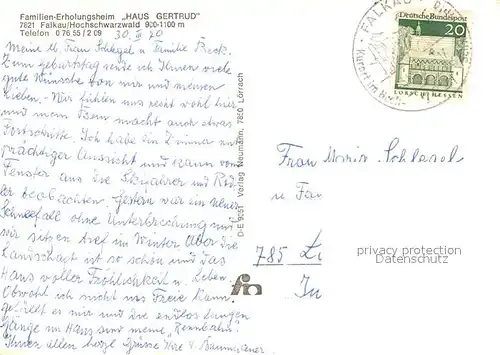 Familien-Erholungsheim „HAUS GERTRUD"
7821 Falkau/Hochschwarzwald 900-1100 m
Telefon 0 76 55 / 2 09
30. III 70
Meine l. Frau Schlegel u Familie Beck.
Zum Geburtstag sende ich Ihnen viele
gute Wünsche von mir und meinen
Lieben. - Wir fühlen uns recht wohl hier
und mein Bein macht auch etwas
Fortschritte. Ich habe ein Zimmer mit
prächtiger Aussicht und kann vom
Fenster aus die Skifahrer und Rod-
ler beobachten. Gestern war ein
Schneefall ohne Unterbrechung und
wir sitzen tief im Winter. Aber die
Landschaft ist so schön und das
Haus voller Fröhlichkeit u. Leben.
Obwohl ich nicht ins Freie kann,
gefällt es mir und die endlos langen
Gänge im Haus sind meine „Rennbahn"!
Ihnen allen herzl. Grüsse Ihre
D-E 9051 Verlag Neumann, 7850 Lörrach
FALKAU
Deutsche Bundespost
20
LORSCH/HESSEN
Frau Maria Schlegel
u Fam
785 L
privacy protection
Datenschutz